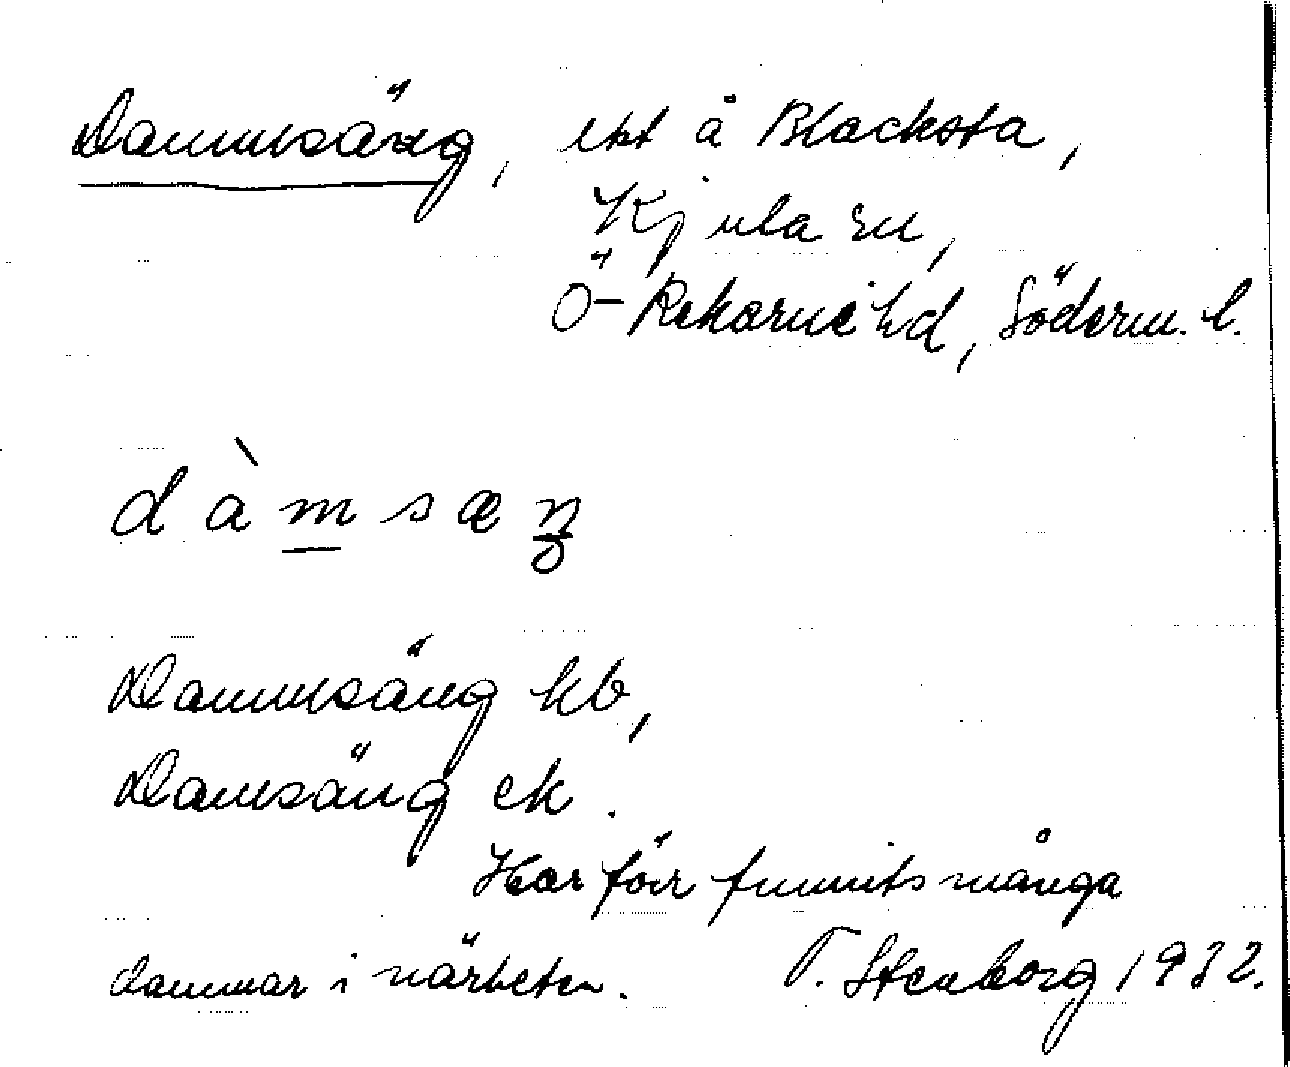 Dammsäng, lht å Blacksta,
Kjula sn,
Ö-Rekarne hd, Söderm. l.
dàmsæŋ
Dammsäng kb,
Damsäng ek.
Har förr funnits många
dammar i närheten. T. Stenborg 1932.